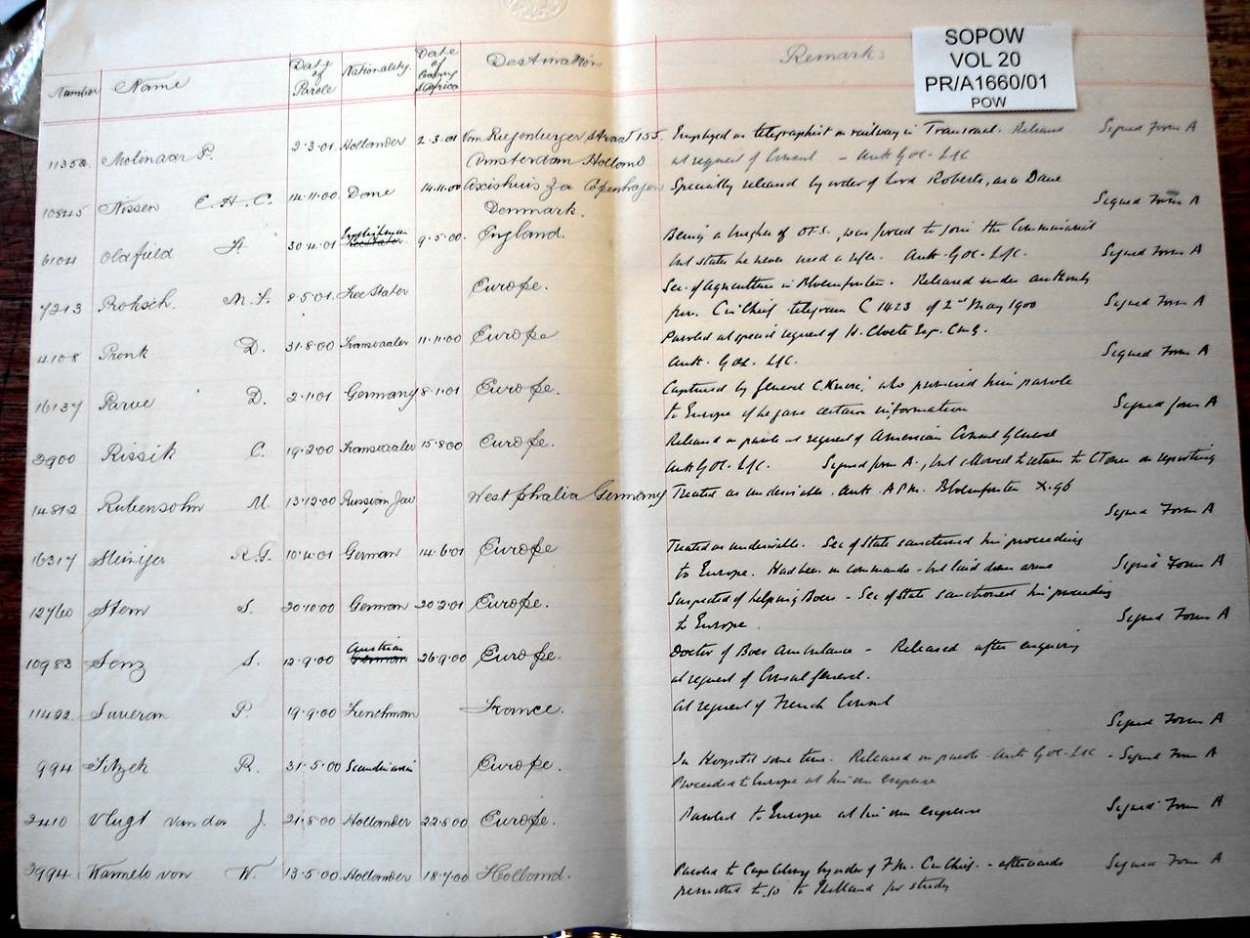 SOPOW
VOL 20
PR/A1660/01
POW
Number Name Date of Parole Nationality Date of leaving S Africa Destination Remarks
11353 Molinaar P. 2.3.01 Hollander 2.3.01 Von Riegenburger straat 155 Employed as telegraphist on railway in Transvaal. Released Signed Form A
Amsterdam Holland at request of Consul - Auth GOC. L of C
10845 Nissen C.H.C. 14.11.00 Dane 14.11.00 Copenhagen Specially released by order of Lord Roberts, as a Dane
Denmark. Signed Form A
6104 Oldfield 30.4.01 Englishman 9.5.00. England. Being a burgher of O.F.S., was forced to join the Commissariat
but states he never used a rifle. Auth GOC. L of C. Signed Form A
7213 Proksch. M.F. 8.5.01. Free Stater Europe. Sec. of Agriculture in Bloemfontein. Released under authority
from C in Chief telegram C 1423 of 2nd May 1900 Signed Form A
4108 Pronk D. 31.8.00 Transvaaler 11.11.00 Europe Paroled at special request of H. Cloete Esq. C.M.G.
Auth. GOC. L of C. Signed Form A
16137 Parve D. 2.1.01 Germany 8.1.01 Europe. Captured by General C Knox, who promised him parole
to Europe if he gave certain information Signed form A
2900 Rissik C. 19.2.00 Transvaaler 15.8.00 Europe. Released on parole at request of American Consul General
Auth GOC. L of C. Signed form A, but allowed to return to C Town on reporting
14812 Rubensohn M. 13.12.00 Russian Jew Westphalia Germany Treated as undesirable. Auth. A.P.M. Bloemfontein X.96
Signed Form A
16317 R.G. 10.4.01 German 14.6.01 Europe Treated as undesirable. Sec of State sanctioned his proceeding
to Europe. Had been on commando - but laid down arms Signed Form A
12760 Stern S. 20.10.00 German 20.2.01 Europe. Suspected of helping Boers - Sec of State sanctioned his proceeding
to Europe. Signed Form A
10983 S. 12.9.00 Austrian 26.9.00 Europe. Doctor of Boer Ambulance - Released after enquiry
at request of Consul General.
11422 Suveran P. 19.9.00 Frenchman France. At request of French Consul
Signed Form A
994 Sitzek R. 31.5.00 Scandinavian Europe. In Hospital some time. Released on parole - Auth GOC. L of C - Signed Form A
Proceeded to Europe at his own expense
2410 Vlugt van der J. 21.8.00 Hollander 22.8.00 Europe. Paroled to Europe at his own expense Signed Form A
3994 Warmelo von W. 13.5.00 Hollander 18.7.00 Holland. Paroled to Cape Colony by order of F.M. C in Chief. - afterwards Signed Form A
permitted to go to Holland for study